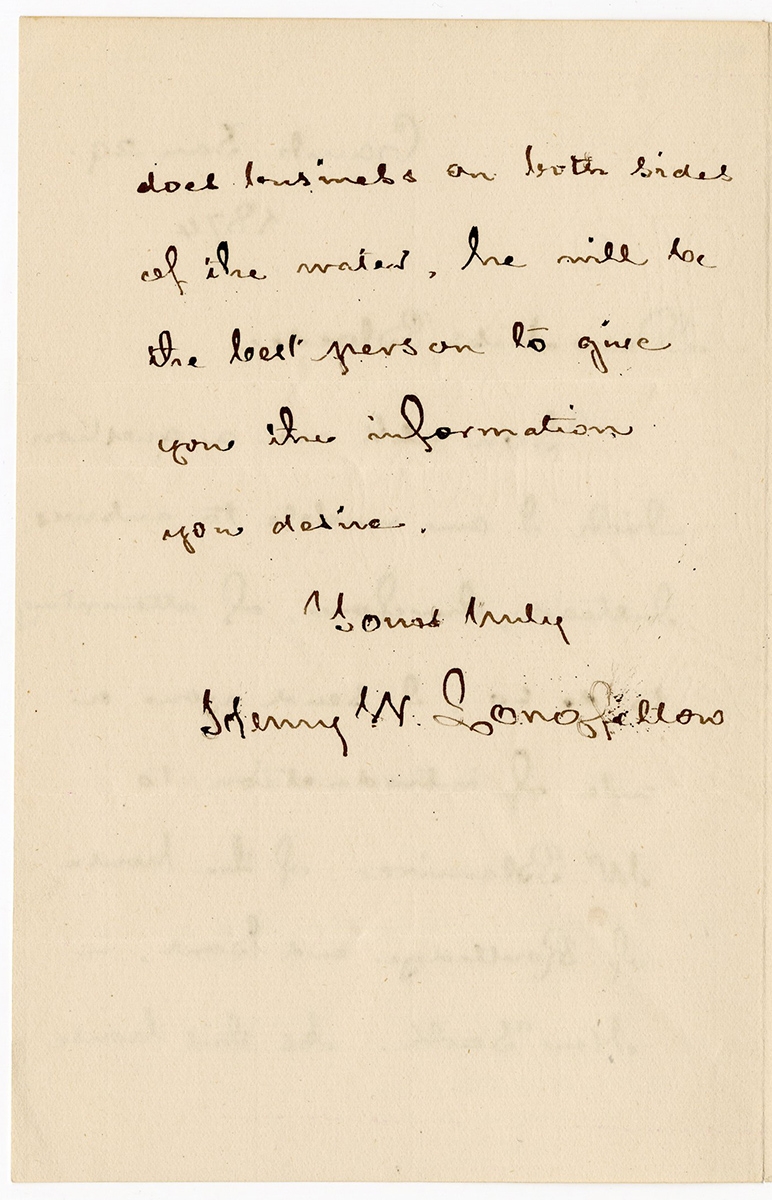 does business on both sides
of the water, he will be
the best person to give
you the information
you desire.
Yours truly
Henry W. Longfellow